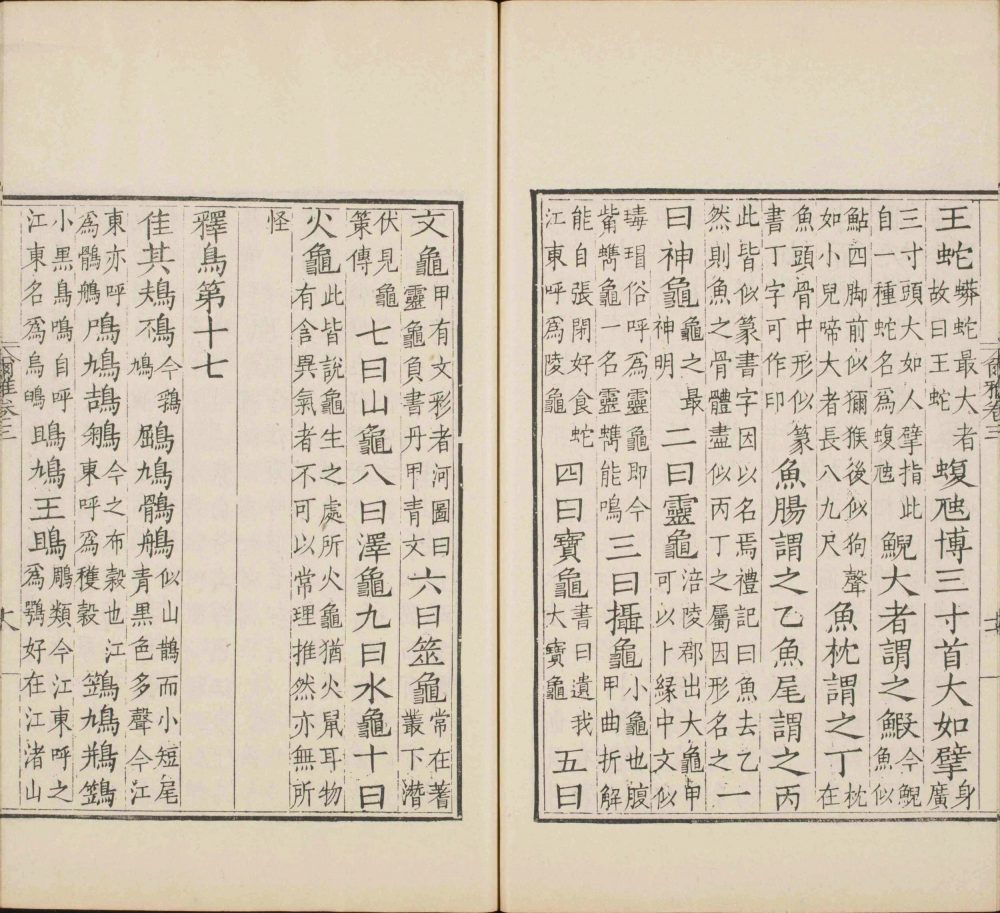 王蛇蟒蛇最大者故曰王蛇蝮虺博三寸首大如擘身廣
三寸頭大如人擘指此自一種蛇名爲蝮虺鯢大者謂之鰕今鯢魚似
鮎四脚前似獼猴後似狗聲如小兒啼大者長八九尺魚枕謂之丁枕在
魚頭骨中形似篆書丁字可作印魚腸謂之乙魚尾謂之丙
此皆似篆書字因以名焉禮記曰魚去乙然則魚之骨體盡似丙丁之屬因形名之一
曰神龜龜之最神明二曰靈龜涪陵郡出大龜甲可以卜緣中文似
瑇瑁俗呼爲靈龜即今觜蠵龜一名靈蠵能鳴三曰攝龜小龜也腹甲曲折解
能自張閉好食蛇江東呼爲陵龜四曰寶龜書曰遺我大寶龜五曰
文龜甲有文彩者河圖曰靈龜負書丹甲青文六曰筮龜常在蓍叢下潛
伏見龜策傳七曰山龜八曰澤龜九曰水龜十曰
火龜此皆說龜生之處所火龜猶火鼠耳物有含異氣者不可以常理推然亦無所
怪
釋鳥第十七
隹其鳺鴀今鵓鳩鶌鳩鶻鵃似山鵲而小短尾青黑色多聲今江
東亦呼爲鶻鵃鳲鳩鴶鵴今之布穀也江東呼爲穫穀鷑鳩鵧鷑
小黑鳥鳴自呼江東名爲烏鴔鴡鳩王鴡鵰類今江東呼之爲鶚好在江渚山